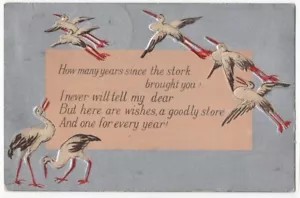 How many years since the stork
brought you?
I never will tell my dear
But here are wishes, a goodly store
And one for every year!